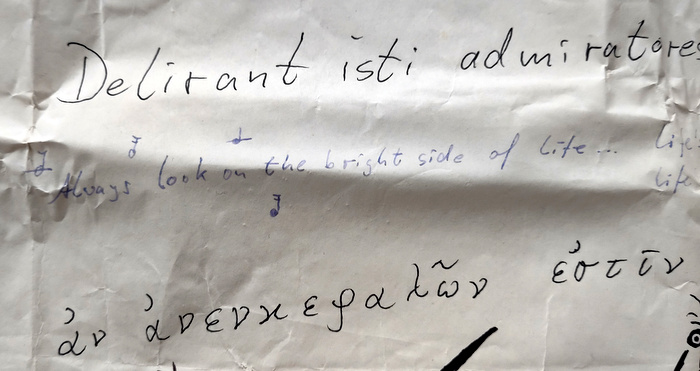 Delirant isti admiratores
Always look on the bright side of life...
life
ἀν ἀνενκεφαλῶν ἐστῖν